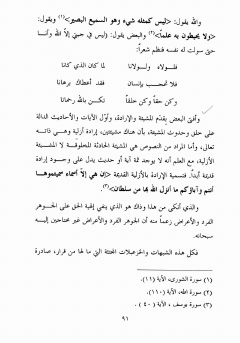 والله يقول: «ليس كمثله شيء وهو السميع البصير»(١) ويقول:
«ولا يحيطون به علماً»(٢) والبعض يقول: (ليس في جبتي إلاّ الله) وأنما
حتى سولت له نفسه فنظم شعراً:
فلولاه ولولانا لما كان الذي كانا
فلا تعجب بإنسان فقد أعطاك برهانا
وكن حقاً وكن خلقاً تكن بالله رحمانا
وأفتى البعض بقدم المشيئة والإرادة، وأوّل الآيات والأحاديث الدالة
على خلق وحدوث المشيئة، بأن هناك مشيئتين، إرادة أزلية وهي ذاته
تعالى، وأما المراد من النصوص هي المشيئة الحادثة المخلوقة لا المشيئة
الأزلية، مع العلم أنه لا يوجد ثمة آية أو حديث يدل على وجود إرادة
قديمة أبداً. فتسمية الإرادة بالأزلية القديمة «إن هي إلاّ أسماء سميتموها
أنتم وآباؤكم ما أنزل الله بها من سلطان»(٣).
والذي أنكى من هذا وذاك هو الذي ينفي إلهية الحق على الجوهر
الفرد والأعراض زعماً منه أن الجوهر الفرد والأعراض غير محتاجين إليه
سبحانه.
فكل هذه الشبهات والخزعبلات المجتثة التي ما لها من قرار، صادرة
(١) سورة الشورى، الآية (١١).
(٢) سورة طه، الآية (١١٠).
(٣) سورة يوسف، الآية (٤٠).
٩١